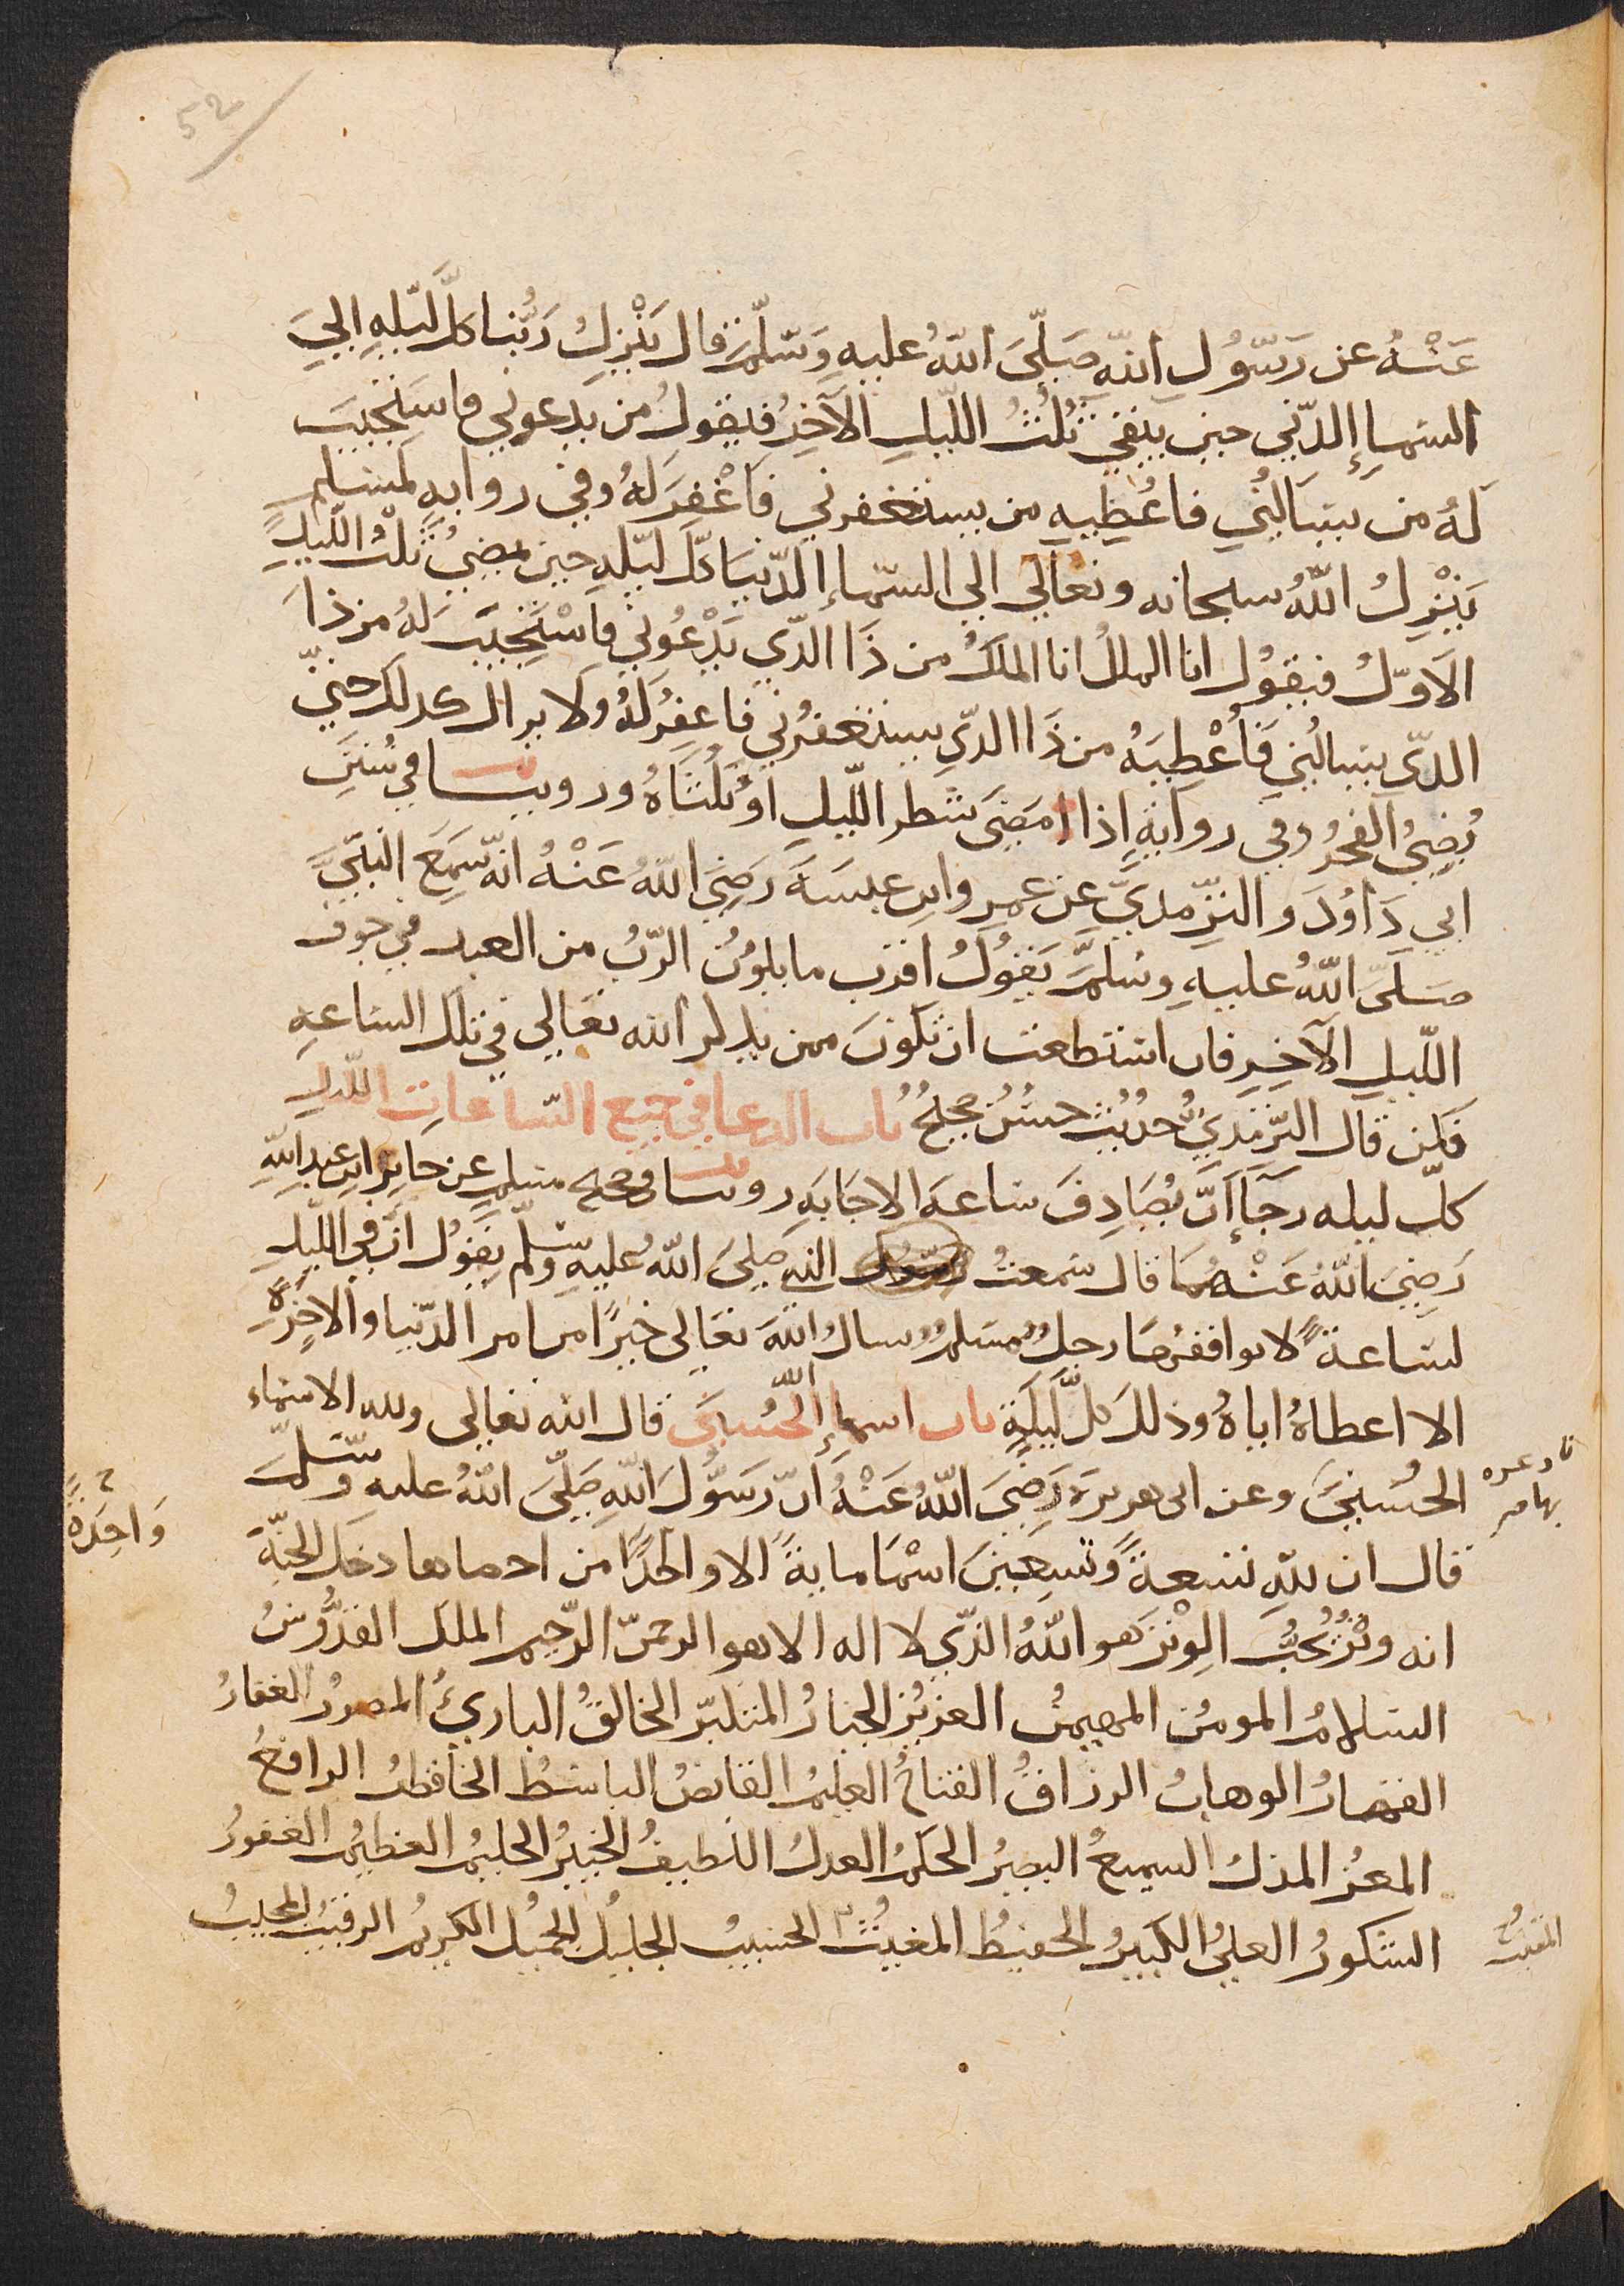 52
عَنْهُ عن رَسُولِ اللهِ صَلَّىَ اللهُ عليهِ وَسَلَّمَ قال يَنْزِلُ رَبُّنا كلَّ لَيْلهٍ الىَ
السَماءِ الدّنيي حين يبقي ثُلُثُ اللّيلِ الآخِرُ فيقولُ من يدعوني فاستَجيبَ
لَهُ من يسَالُني فاُعْطِيهِ من يستغفرني فَاغْفِرَ لَهُ وفي روايهٍ لمُسْلمٍ
يَنْزِلُ اللهُ سبحانه وتعالي الي السّماءِ الدّنيَا كلَّ ليّلهٍ حين يمضِيُ ثُلُثُ اللّيلِ
الاَوّلُ فيقوُل انا الملكُ انا الملكُ من ذَا الّذي يَدْعُوني فاَسْتَجِيبَ لهُ من ذا
الذّي يسالُني فَاُعْطِيَهُ من ذَا الذّي يستغفرُني فاغفِرُ لهُ ولا يزال كذلك حتيّ
يُضِيُ الفجرُ وفي روايةٍ اذا امضَي شطر اللّيلِ اَو ثُلُثَاهُ وروينا في سُنَنِ
ابي دَاوُدَ والترّمذيّ عن عمرِ وابنِ عبسَةَ رَضِيَ اللهُ عَنْهُ انّه سَمِعَ النبيَّ
صَلّىَ اللهُ عليهِ وسَلمَّ يَقوُلُ اقرب ما يكوُنُ الرّبُ من العبد في جوف
اللّيلِ الآخِرِ فان استطعت ان تكونَ ممن يذكر الله تعالي في تلك الساعهِ
فَكن قال الترّمذيُّ حديُث حسَنُ صحيحُ باب الدعا في جميع السّاعاتِ اللّيل
كلّ ليله رجَآءَ انَّ يُصَادِفَ ساعهَ الاجَابهِ روينا في صحيح مسلم عن جابرِ ابنِ عبدِ اللهِ
رَضِيَ اللهُ عَنْهُمَا قال سَمعتُ رسول الله صَلىَ اللهُ عليهِ وسلّم يقوُل انَّ في اللّيلِ
لسَاعةً لا يوافقهُا رجلُ مسْلمُ يسالُ اللهَ تعَالى خيرًا من امر الدّنيا والاخِرَةِ
الا اعطاهُ اياهُ وذلكَ كلَّ لَيلَةٍ باب اسماءِ اللّه الحُسنيَ قال الله تعالي ولله الاسماء
الحُسْنيَ وعن ابى هريرة رَضِيَ اللّهُ عَنْهُ انّ رَسوُلَ اللهِ صَلّىَ اللهُ عليه وسَلّمَ
فادعوه
بها م
قال ان لله تسعةً وَتسِعينَ اسْمَا مايةً الا واحدًا من احصاها دخل الجنّةَ
وَاحِدَةً
انه وترُ يُحبُّ الوِتْرَ هو اللهُ الذّي لا اله الا هو الرحمنّ الرّحيم الملك القدّوسُ
السلامُ المومنُ المهيمنُ العزيزُ الجبارُ المتكبرّ الخالقُ الباريُ المصورُ الغفارُ
القهارُ الوهابُ الرزاقُ الفتاحُ العليمُ القابضُ الباسطُ الخافظُ الرافعُ
المعزُ المذلُ السميعُ البصيرُ الحكمُ العدلُ اللطيفُ الخبيرُ الحليمُ العظيمُ الغفورُ
الشكورُ العليُ الكبيرُ الحفيظُ المغيثُ الحسيبُ الجليلُ الجميلُ الكريمُ الرقيبُ المجيبُ
المقيتُ